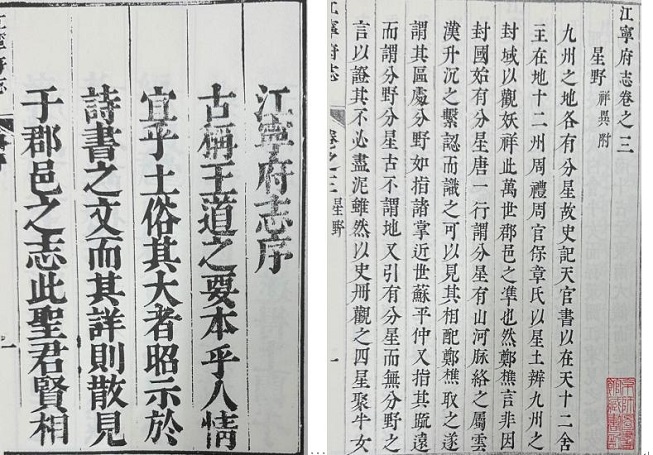 江寧府志序
古稱王道之要本乎人情
宜乎土俗其大者昭示於
詩書之文而其詳則散見
于郡邑之志此聖君賢相
江寧府志卷之三
星野 祥異附
九州之地各有分星故史記天官書以在天十二舍
主在地十二州周禮周官保章氏以星土辨九州之
封域以觀妖祥此萬世郡邑之準也然鄭樵言非因
封國始有分星唐一行謂分星有山河脉絡之屬雲
漢升沉之繫認而識之可以見其相配鄭樵取之遂
謂其區處分野如指諸掌近世蘇平仲又指其疏遠
而謂分野分星古不謂地又引有分星而無分野之
言以證其不必盡泥雖然以史冊觀之四星聚牛女
江寧府志 卷之三 星野 一